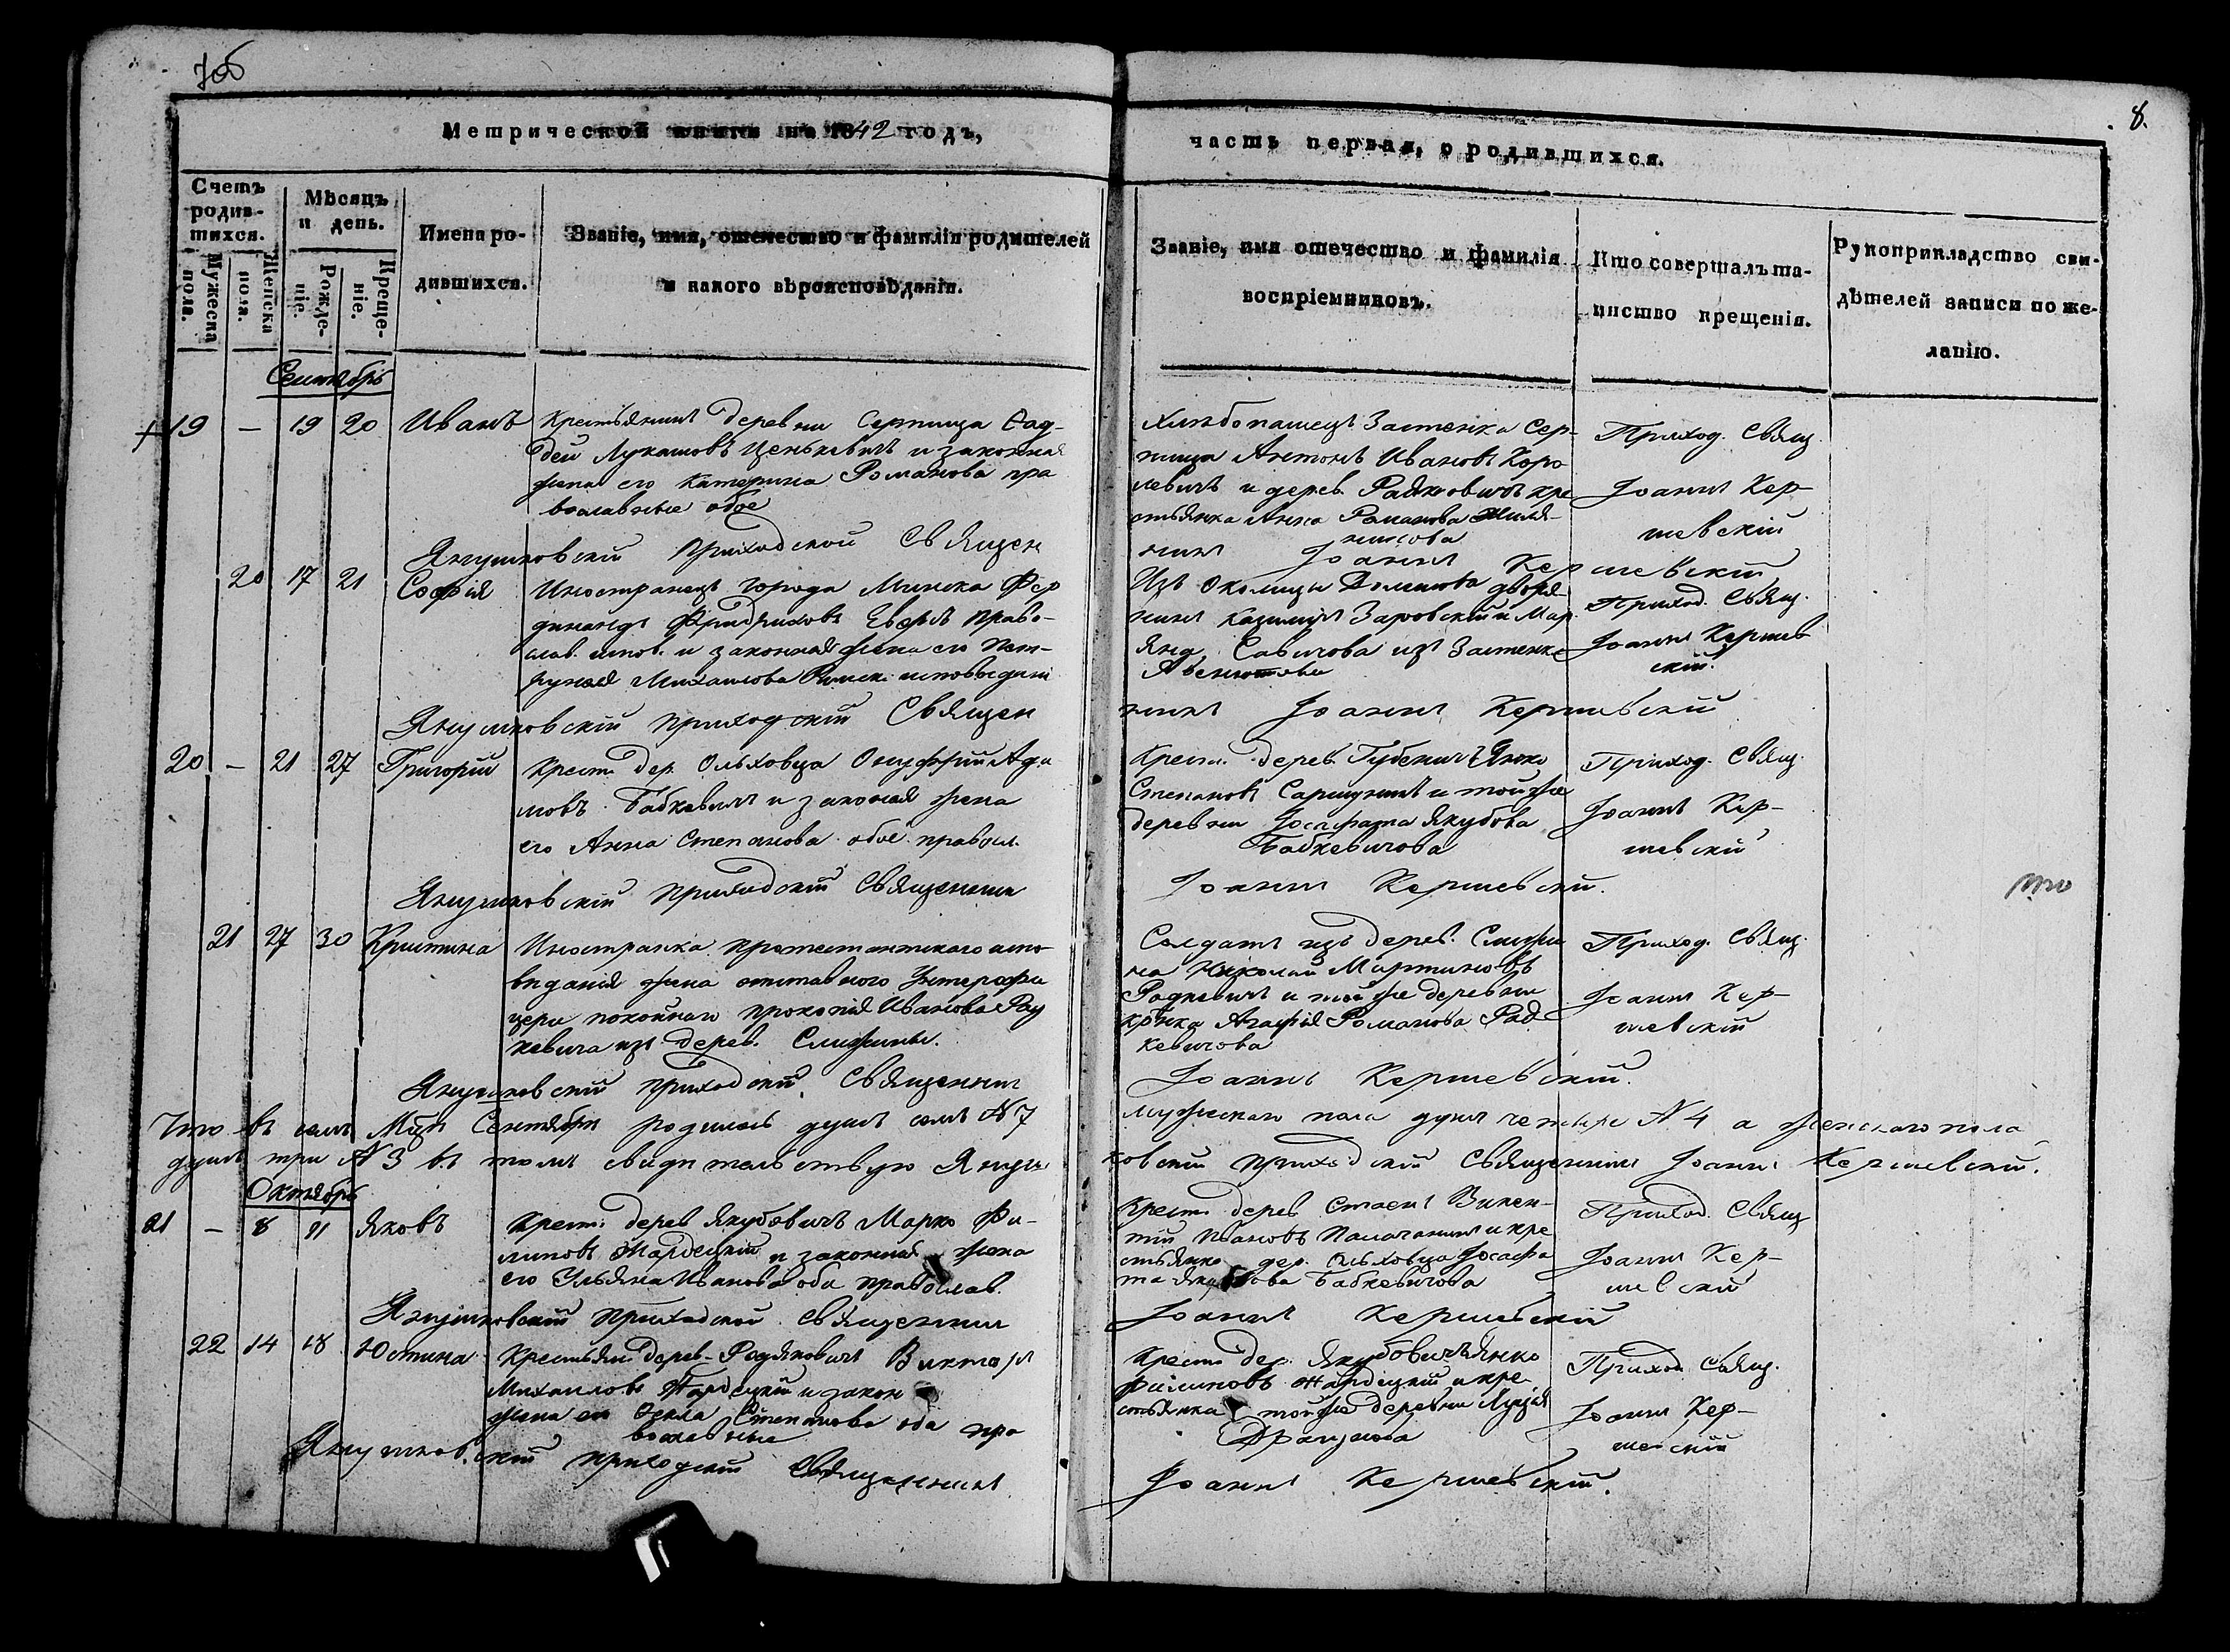 8.
Метрической книги на 1842 годъ,
часть первая, о родившихся.
Счетъ родив-
шихся.
Мужеска пола.
Женска пола.
Мѣсяцъ
и день.
Рожде-
ніе.
Креще-
ніе.
Имена ро-
дившихся.
Званіе, имя, отечество и фамилія родителей
и какого вѣроисповѣданія.
Званіе, имя отечество и фамилія
воспріемниковъ.
Кто совершалъ та-
инство крещенія.
Рукоприкладство сви-
дѣтелей записи по же-
ланію.
Сентябрь
19 — 19 20 Иванъ
Крестьянинъ деревни Серпища Фад-
дей Лукашовъ Ценькевичъ и законная
жена его Катерина Романова пра
вославные обое
Хлѣбопашецъ Застенка Сер-
пища Антонъ Ивановъ Коро
левичъ и дерев. кре
стьянка Анна Романова
Приход. Свящ.
Іоаннъ Кер-
шевскій
Янушковскій приходской Священ
никъ Іоаннъ Кершевскій
20 17 21 Софія
Иностранецъ города Минска Фер
динандъ Фридриховъ право-
слав. испов. и законная жена его Пет-
рунея Михайлова Римск. исповѣданія
Изъ Околицы дворя-
нинъ Казимиръ и Мар
яна Савичова изъ Застенка
Приход. Свящ.
Іоаннъ Кершев
скій.
Янушковскій приходскій Священ
никъ Іоаннъ Кершевскій
20 — 21 27 Григорій
Крест. дер. Ольховца Онуфрій Ада
мовъ Бабкевичъ и законая жена
его Анна Степанова обое правосл.
Крест. дерев. Янко
Степановъ и той же
деревни Іосафата Якубова
Бабкевичова
Приход. Свящ.
Іоаннъ Кер-
шевскій
Янушковскій приходскій Священникъ
Іоаннъ Кершевскій.
21 27 30 Кристина
Иностранка протестантскаго испо-
вѣданія жена отставного Унтерофи
цера покойнаго Прокопія Иванова Рад
кевича изъ дерев. Слижины.
Солдатъ изъ дерев. Слижи
на Николай Мартиновъ
Радкевичъ и той же деревни
кр-нка Агафія Романова Рад-
кевичова
Приход. Свящ.
Іоаннъ Кер-
шевскій
Янушковскій приходскій Священникъ
Іоаннъ Кершевскій.
Что въ семъ М-цѣ Сентябрѣ родилось душъ семь N 7
мужескаго пола душъ четыре N 4 а женскаго пола
душъ три N 3 въ томъ свидѣтельствую Януш
ковскій приходскій Священникъ Іоаннъ Кершевскій.
Октябрь
21 — 8 11 Яковъ
Крест. дерев Якубовичъ Марко Фи-
липовъ Жардецкій и законная жена
его Ульяна Иванова оба православ.
Крест. дерев Стаекъ Викен-
тій Ивановъ и кре
стьянка дер. Ольховца Іосафа
та Якубова Бабкевичова
Приход. Свящ
Іоаннъ Кер-
шевскій
Янушковскій приходской священникъ
Іоаннъ Кершевскій
22 14 18 Юстина
Крестьян. дерев. Викторъ
Михаиловъ Жардецкій и закон
жена его Фекла Степанова оба пра
вославные
Крест. дер. Якубовичъ Янко
Филиповъ Жардецкій и кре-
стьянка той же деревни Луція
Приход. Свящ.
Іоаннъ Кер-
шевскій
Янушковскій приходскій Священникъ
Іоаннъ Кершевскій.